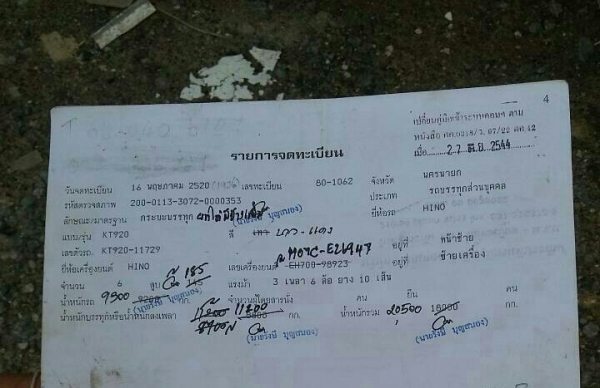 4
เปลี่ยนคู่มือเข้าระบบคอมฯ ตาม
หนังสือ คค.0318/ว.07/22 คค.42
เมื่อ 27 มิ.ย. 2544
รายการจดทะเบียน
วันจดทะเบียน 16 พฤษภาคม 2520 เลขทะเบียน 80-1062 จังหวัด นครนายก
รหัสตรวจสภาพ 200-0113-3072-0000353 ประเภท รถบรรทุกส่วนบุคคล
ลักษณะ/มาตรฐาน กระบะบรรทุก ยี่ห้อรถ HINO
แบบ/รุ่น KT920 สี เทา ขาว-แดง
เลขตัวรถ KT920-11729 อยู่ที่ หน้าซ้าย
ยี่ห้อเครื่องยนต์ HINO เลขเครื่องยนต์ H07C-E21947 EH700-98923 อยู่ที่ ซ้ายเครื่อง
จำนวน 6 สูบ 185 145 แรงม้า 3 เพลา 6 ล้อ ยาง 10 เส้น
น้ำหนักรถ 9300 กก. จำนวนโดยสารนั่ง คน ยืน คน
น้ำหนักบรรทุกหรือน้ำหนักลงเพลา 11200 กก. น้ำหนักรวม 20500 18000 กก.
(นายรังษี บุญสนอง)